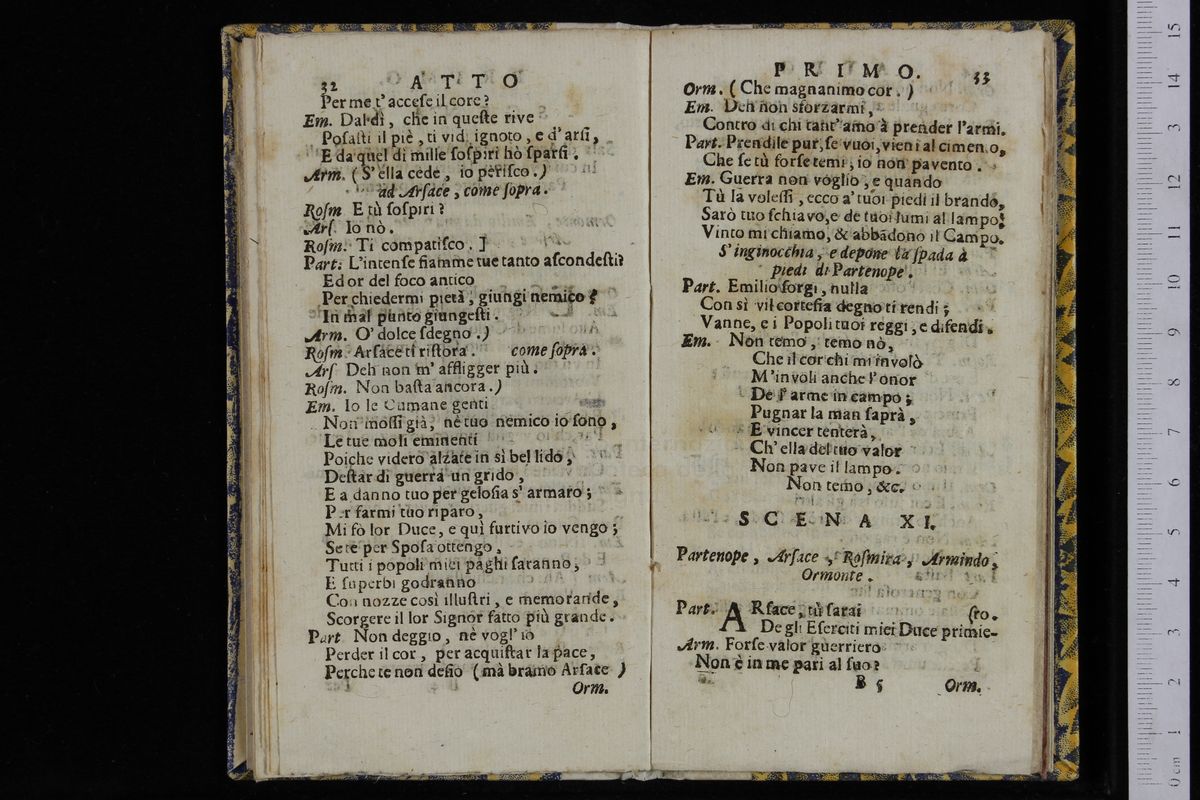 32 ATTO
Per me t' accese il core?
Em. Dal dì, che in queste rive
Posasti il piè, ti vidi ignoto, e d' arsi,
E da quel di mille sospiri hò sparsi.
Arm. (S' ella cede, io perisco.)
ad Arsace, come sopra.
Rosm E tù sospiri?
Ars. Io nò.
Rosm. Ti compatisco. ]
Part. L'intense fiamme tue tanto ascondesti?
Ed or del foco antico
Per chiedermi pietà, giungi nemico?
In mal punto giungesti.
Arm. O' dolce sdegno.)
Rosm. Arsace ti ristora. come sopra.
Ars Deh non m' affligger più.
Rosm. Non basta ancora.)
Em. Io le Cumane genti
Non mossi già, nè tuo nemico io sono,
Le tue moli eminenti
Poiche videro alzate in sì bel lido,
Destar di guerra un grido,
E a danno tuo per gelosia s' armaro;
Per farmi tuo riparo,
Mi fò lor Duce, e quì furtivo io vengo;
Se te per Sposa ottengo,
Tutti i popoli miei paghi saranno,
E superbi godranno
Con nozze così illustri, e memorande,
Scorgere il lor Signor fatto più grande.
Part Non deggio, nè vogl' io
Perder il cor, per acquistar la pace,
Perche te non desio (mà bramo Arsace)
Orm.
PRIMO. 33
Orm. (Che magnanimo cor.)
Em. Deh non sforzarmi,
Contro di chi tant' amo à prender l'armi.
Part. Prendile pur, se vuoi, vieni al cimento,
Che se tù forse temi, io non pavento.
Em. Guerra non voglio, e quando
Tù la volessi, ecco a' tuoi piedi il brando,
Sarò tuo schiavo, e de tuoi lumi al lampo;
Vinto mi chiamo, & abbãdono il Campo.
S' inginocchia, e depone la spada à
piedi di Partenope.
Part. Emilio sorgi, nulla
Con sì vil cortesia degno ti rendi;
Vanne, e i Popoli tuoi reggi, e difendi.
Em. Non temo, temo nò,
Che il cor chi mi involò
M'involi anche l'onor
De l' arme in campo;
Pugnar la man saprà,
E vincer tenterà,
Ch' ella del tuo valor
Non pave il lampo.
Non temo, &c.
SCENA XI.
Partenope, Arsace, Rosmira, Armindo,
Ormonte.
Part. ARsace, tù sarai (ro.
De gli Eserciti miei Duce primie-
Arm. Forse valor guerriero
Non è in me pari al suo?
B 5 Orm.
15
14
13
12
11
10
9
8
7
6
5
4
3
2
1
0 cm